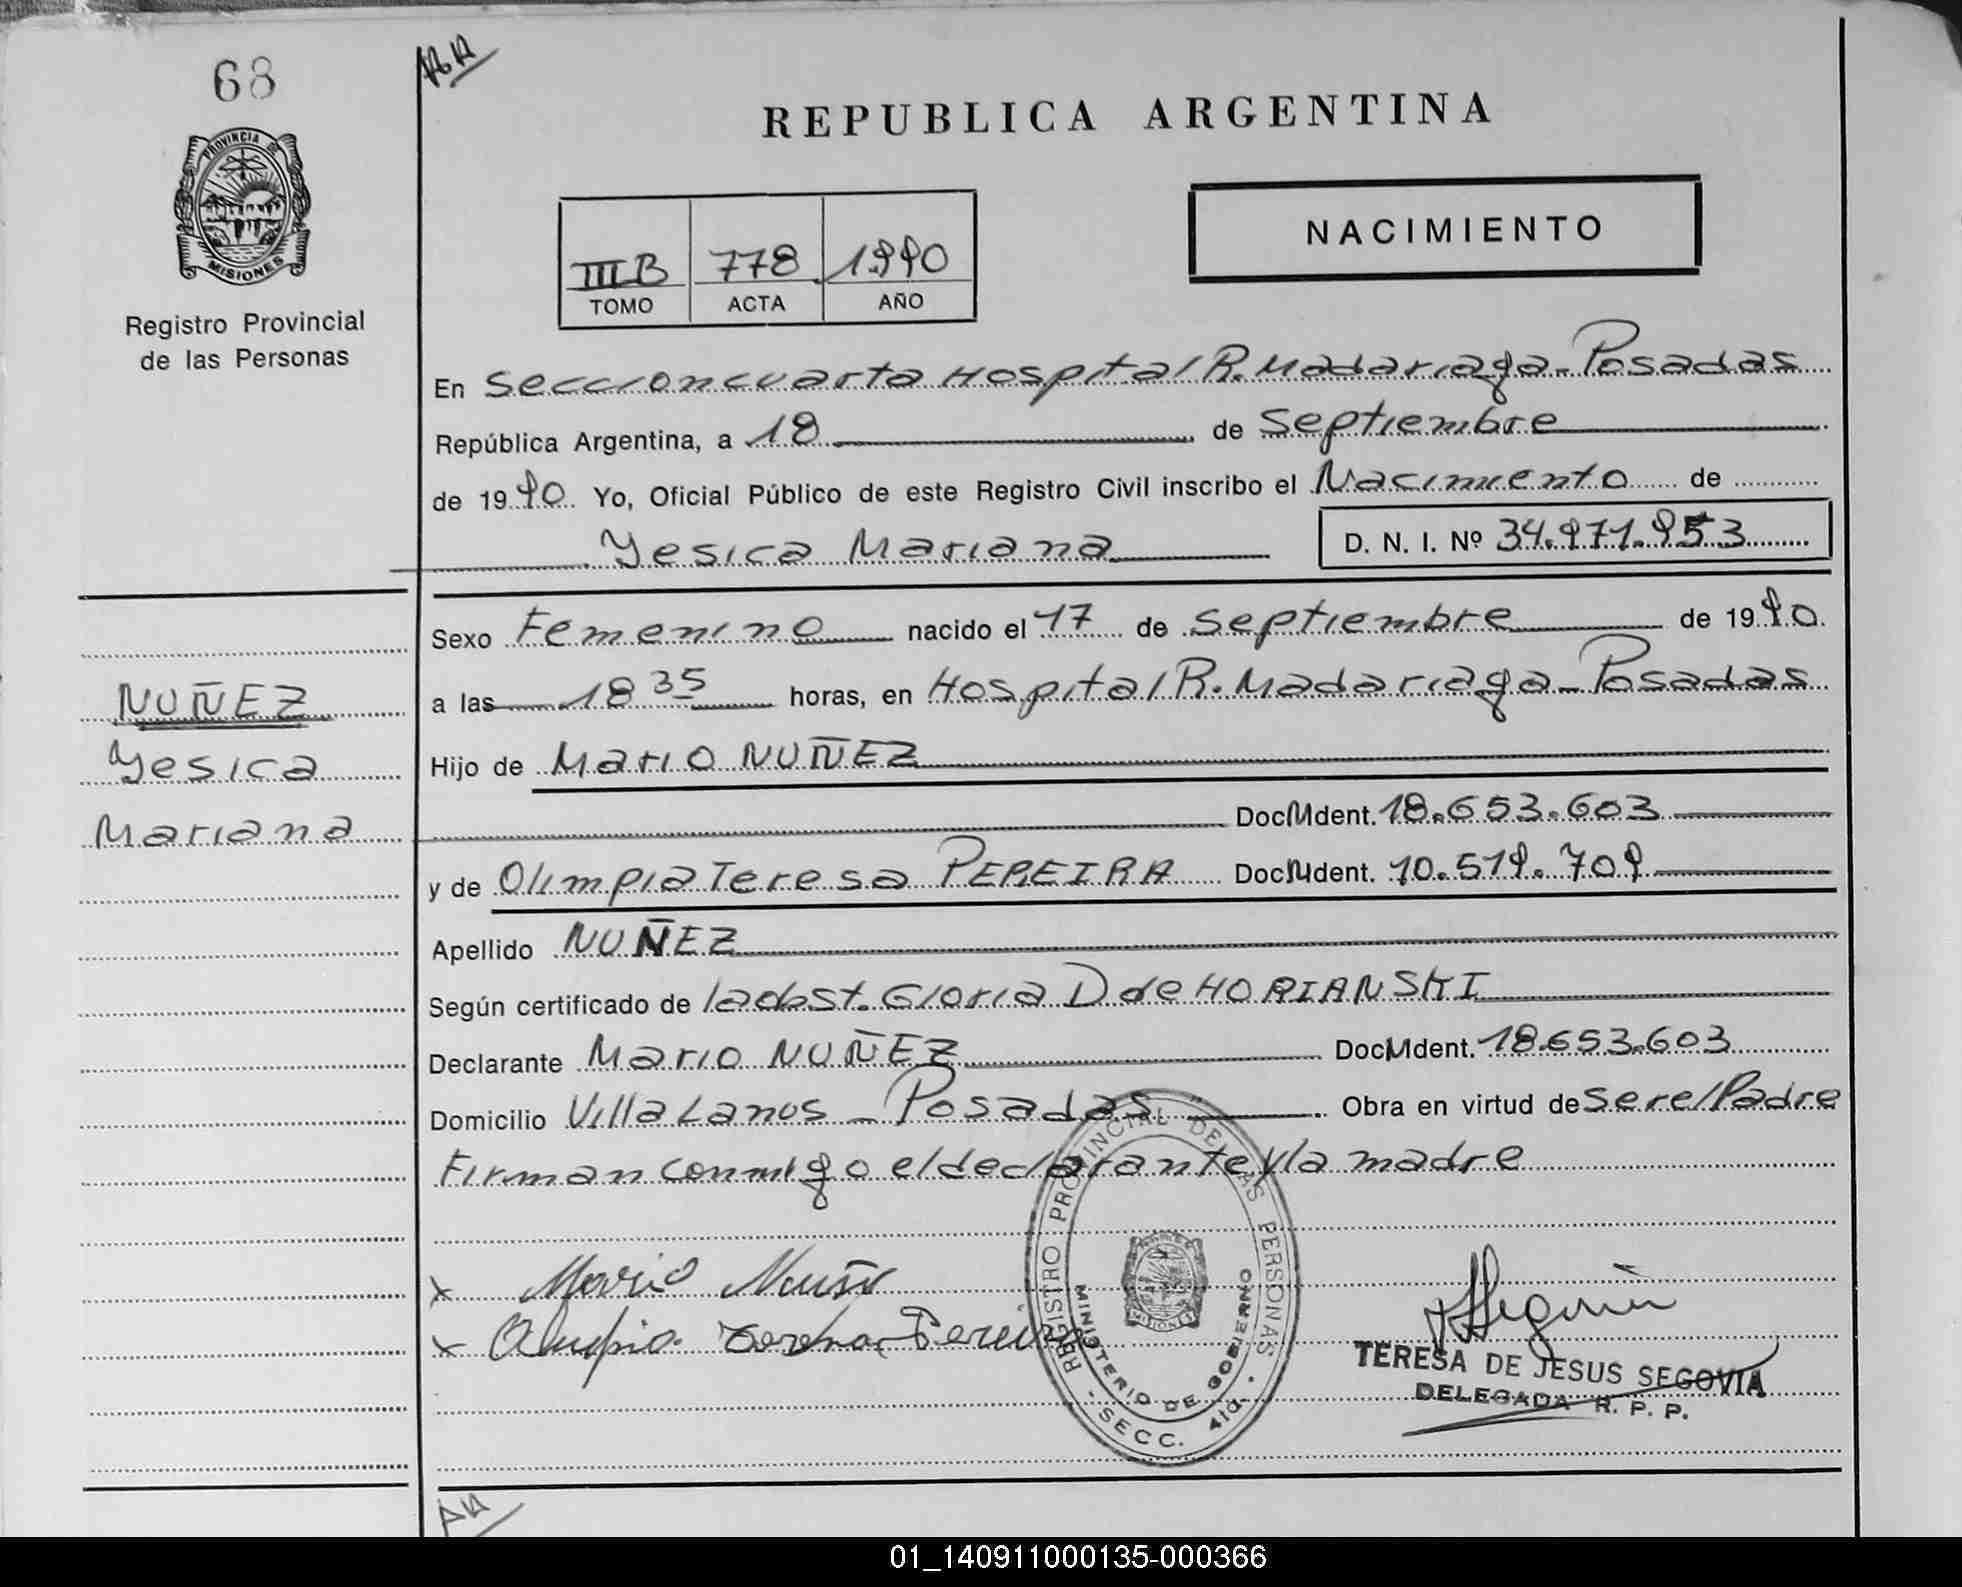 68
REPUBLICA ARGENTINA
PROVINCIA DE
MISIONES
Registro Provincial
de las Personas
NACIMIENTO
IIIB 778 1990
TOMO ACTA AÑO
En Seccion cuarta Hospital R. Madariaga - Posadas
República Argentina, a 18 de Septiembre
de 1990. Yo, Oficial Público de este Registro Civil inscribo el Nacimiento de
Yesica Mariana D. N. I. Nº 34.971.953
Sexo Femenino nacido el 17 de Septiembre de 1990.
a las 18 35 horas, en Hospital R. Madariaga - Posadas
Hijo de Mario NUÑEZ
Doc M Ident. 18.653.603
y de Olimpia Teresa PEREIRA Doc N Ident. 10.519.709
Apellido NUÑEZ
Según certificado de la obst. Gloria D de HORIANSKI
Declarante Mario NUÑEZ Doc M Ident. 18.653.603
Domicilio Villa Lanus - Posadas Obra en virtud de ser el Padre
Firman conmigo el declarante y la madre
NUÑEZ
Yesica
Mariana
x Mario Nuñez
x Olimpia Teresa Pereira
REGISTRO PROVINCIAL DE LAS PERSONAS
MINISTERIO DE GOBIERNO
- SECC. 4ta. -
MISIONES
TERESA DE JESUS SEGOVIA
DELEGADA R. P. P.
01_140911000135-000366